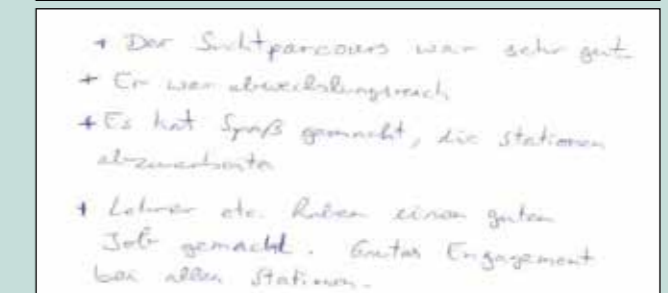 + Der Suchtparcours war sehr gut
+ Er war abwechslungsreich
+ Es hat Spaß gemacht, die Stationen
abzuarbeiten
+ Lehrer etc. haben einen guten
Job gemacht. Gutes Engagement
bei allen Stationen.